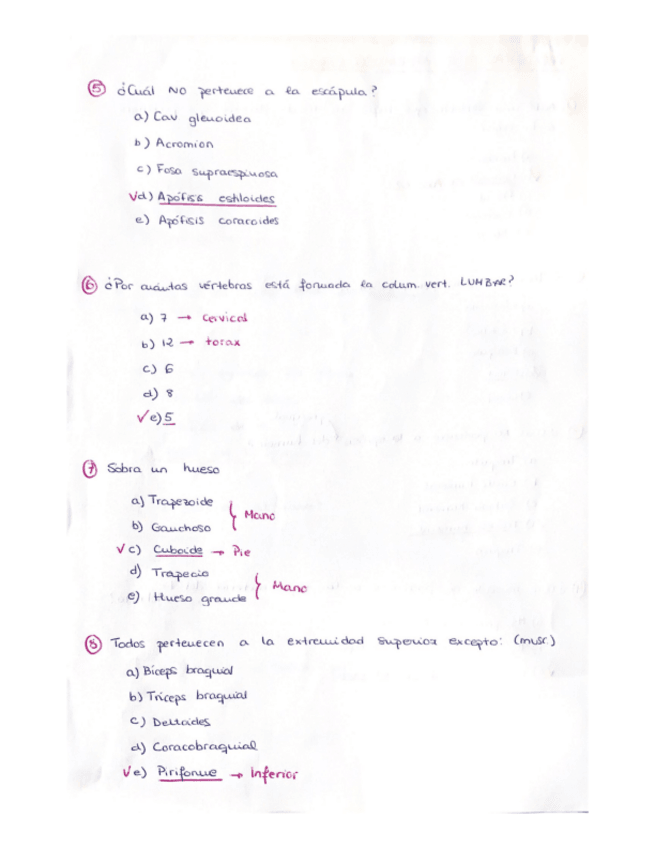 5 ¿Cuál NO pertenece a la escápula?
a) Cav glenoidea
b) Acromion
c) Fosa supraespinosa
✓d) Apófisis estiloides
e) Apófisis coracoides
6 ¿Por cuántas vértebras está formada la colum. vert. LUMBAR?
a) 7 → cervical
b) 12 → torax
c) 6
d) 8
✓e) 5
7 Sobra un hueso
a) Trapezoide
b) Ganchoso } Mano
✓c) Cuboide → Pie
d) Trapecio
e) Hueso grande } Mano
8 Todos pertenecen a la extremidad superior excepto: (musc.)
a) Bíceps braquial
b) Tríceps braquial
c) Deltoides
d) Coracobraquial
✓e) Piriforme → Inferior